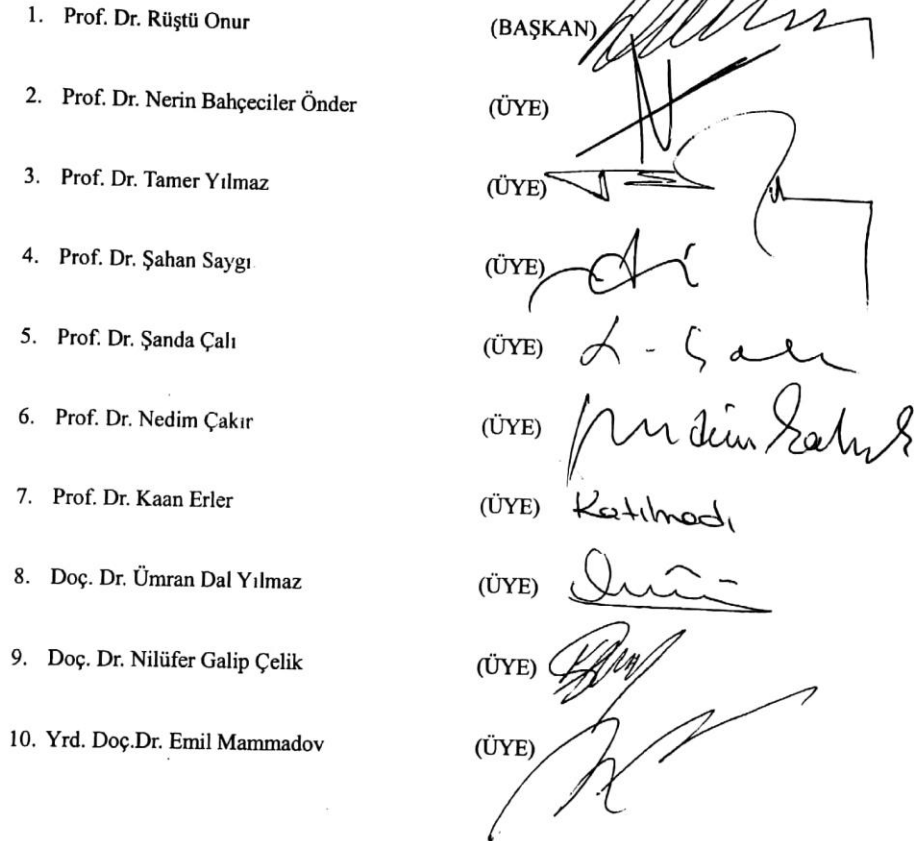 1. Prof. Dr. Rüştü Onur (BAŞKAN)
2. Prof. Dr. Nerin Bahçeciler Önder (ÜYE)
3. Prof. Dr. Tamer Yılmaz (ÜYE)
4. Prof. Dr. Şahan Saygı (ÜYE)
5. Prof. Dr. Şanda Çalı (ÜYE)
6. Prof. Dr. Nedim Çakır (ÜYE)
7. Prof. Dr. Kaan Erler (ÜYE) Katılmadı
8. Doç. Dr. Ümran Dal Yılmaz (ÜYE)
9. Doç. Dr. Nilüfer Galip Çelik (ÜYE)
10. Yrd. Doç.Dr. Emil Mammadov (ÜYE)